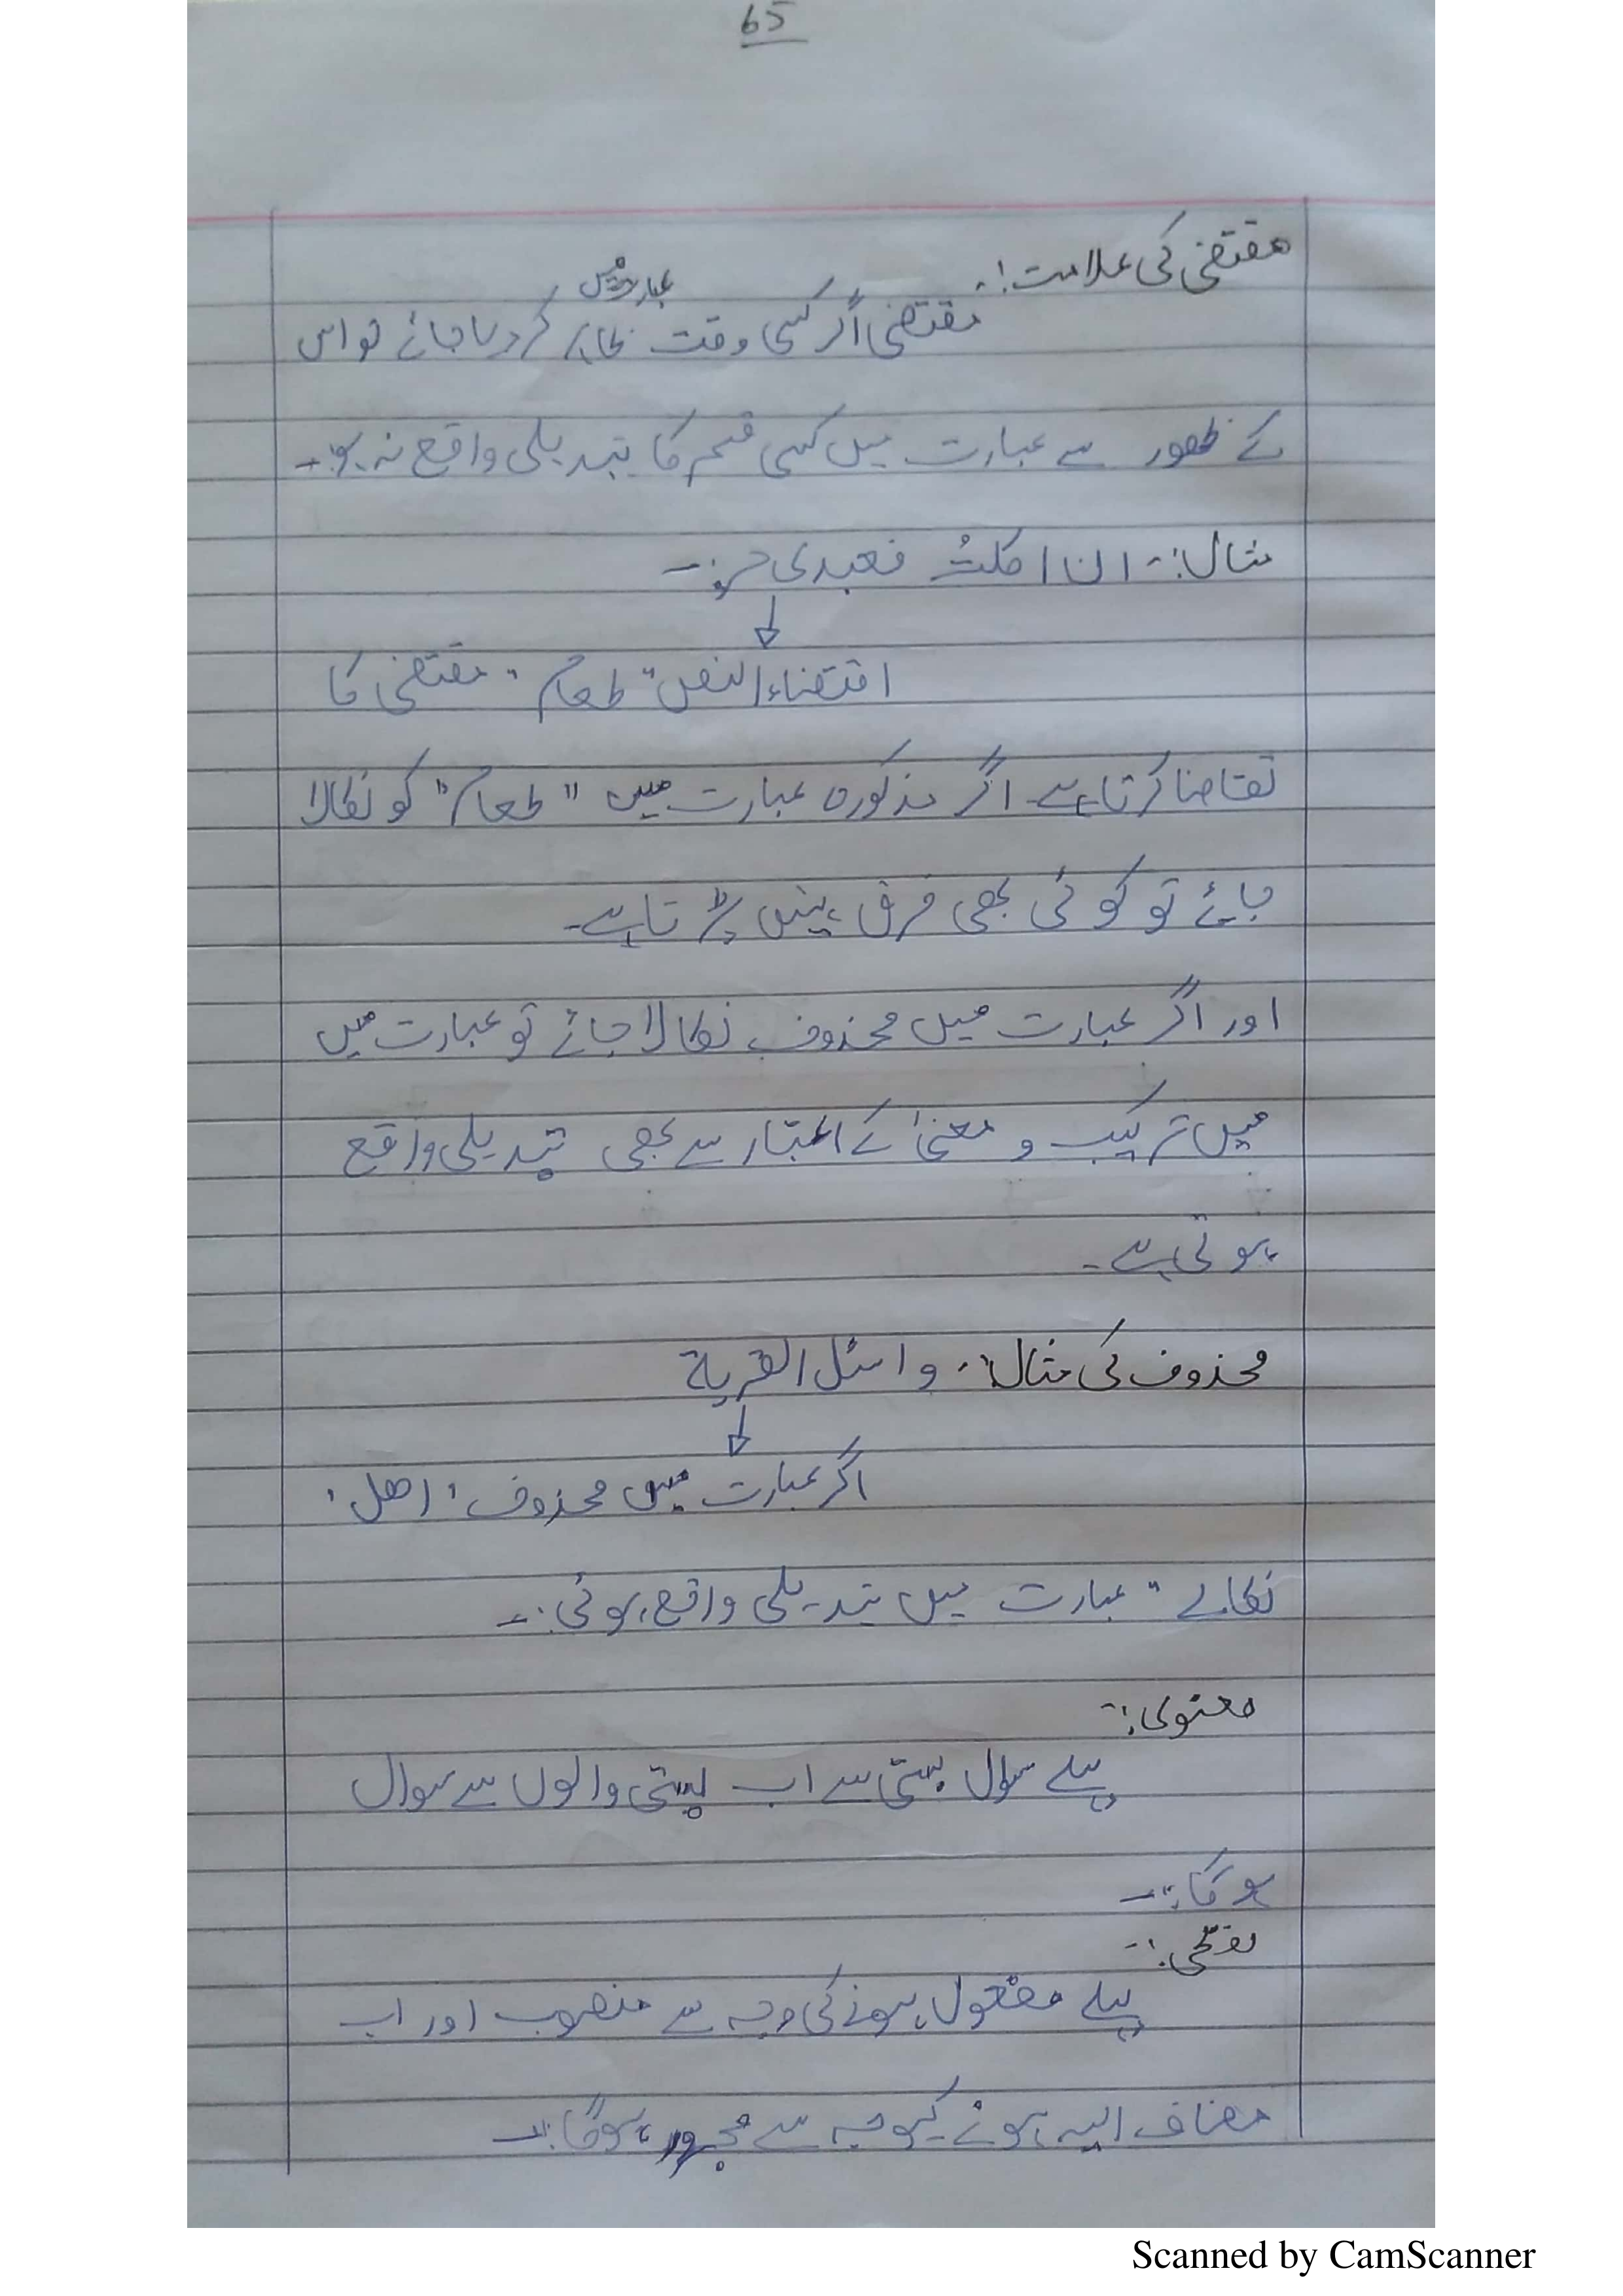 65
مقتضی کی علامت:۔
عبارت میں
مقتضی اگر کسی وقت ظاہر کر دیا جائے تو اس
کے ظھور سے عبارت میں کسی قسم کا تبدیلی واقع نہ ہو۔
مثال:۔ ان اکلتُ فعبدی حر۔
اقتضاء النص "طعام" مقتضی کا
تقاضا کرتا ہے۔ اگر مذکورہ عبارت میں "طعام" کو نکالا
جائے تو کوئی بھی فرق نہیں پڑتا ہے۔
اور اگر عبارت میں محذوف نکالا جائے تو عبارت میں
میں ترکیب و معنیٰ کے اعتبار سے بھی تبدیلی واقع
ہوتی ہے۔
محذوف کی مثال:۔ واسئل القریة
اگر عبارت میں محذوف ' اھل '
نکالے " عبارت میں تبدیلی واقع ہوئی:۔
معنوی:۔
پہلے سوال بستی سے اب بستی والوں سے سوال
ہو گا:۔
لفظی:۔
پہلے مفعول ہونے کی وجہ سے منصوب اور اب
مضاف الیہ ہونے کیوجہ سے مجرور ہوگا:۔
Scanned by CamScanner